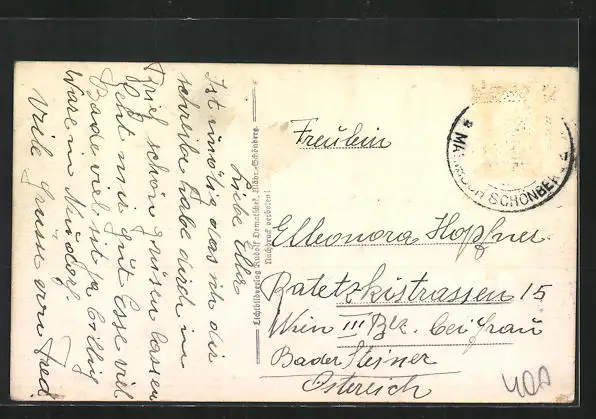 Liebe Elli
Ist unötig das ich dir
schreibe habe dich im
Brief schön grüsen lassen
Geht mir gut Esse viel
Bade viel ist ja billig
Ware in Neudorf.
Viele Grüsse von Fred.
Lichtbildverlag Rudolf Dematschek, Mähr.-Schönberg.
Nachdruck verboten!
Freulein
Elleonora Hopfner
Ratetzkistrassen 15
Wien III Bez. bei Frau
Bader Steiner
Östereich
MÄHRISCH SCHÖNBERG
400